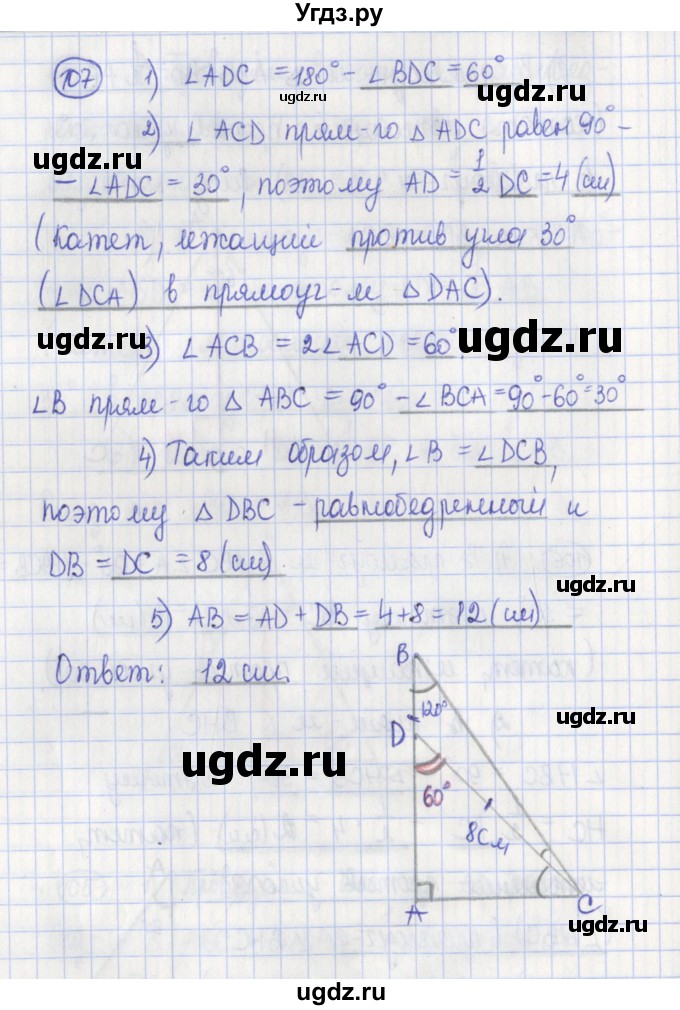 Угдз.ру
107 1) ∠ADC = 180° - ∠BDC = 60°
ugdz.ru ugdz.ru
2) ∠ACD прям-го △ ADC равен 90° -
ugdz.ru
- ∠ADC = 30°, поэтому AD = 1/2 DC = 4 (см)
ugdz.ru
(катет, лежащий против угла 30°
(∠DCA) в прямоуг-м △DAC).
ugdz.ru ugdz.ru
3) ∠ACB = 2∠ACD = 60°.
ugdz.ru
∠B прям-го △ ABC = 90° - ∠BCA = 90° - 60° = 30°
4) Таким образом, ∠B = ∠DCB,
ugdz.ru
поэтому △ DBC - равнобедренный и
DB = DC = 8 (см).
ugdz.ru
5) AB = AD + DB = 4 + 8 = 12 (см)
ugdz.ru
Ответ: 12 см.
B
120°
D
ugdz.ru
60°
8см
ugdz.ru
A
C
ugdz.ru